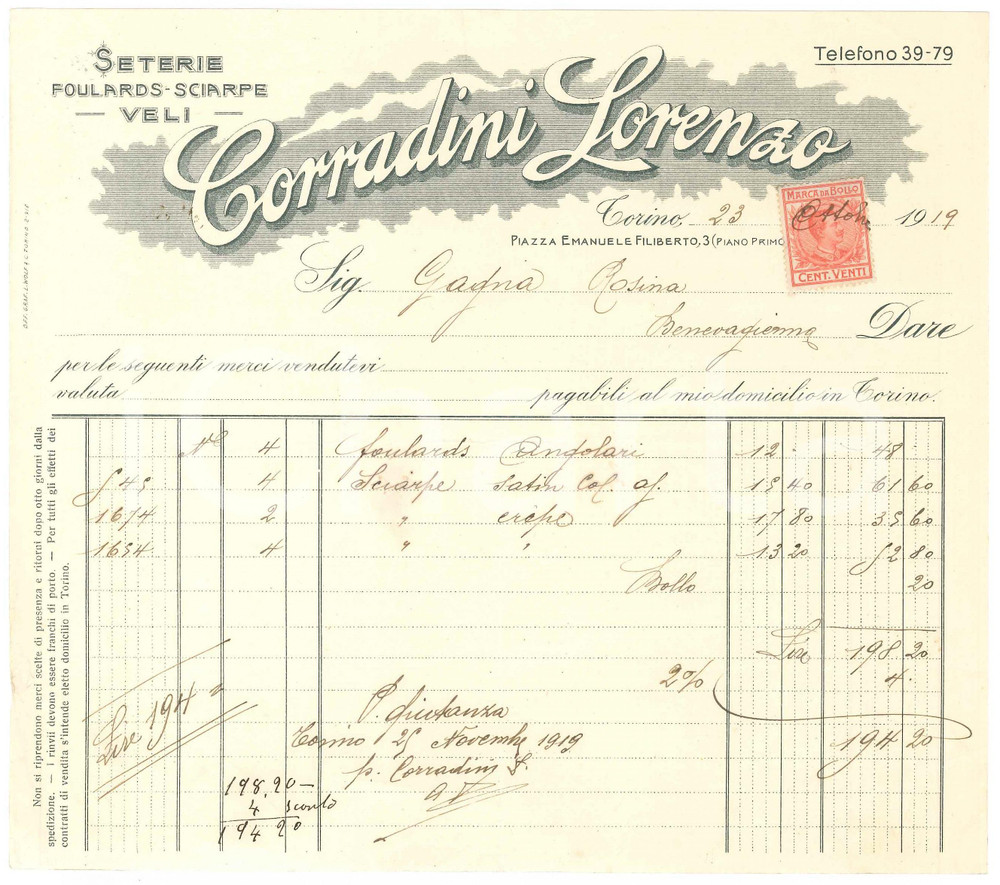 SETERIE
FOULARDS-SCIARPE
VELI
Corradini Lorenzo
Telefono 39-79
MARCA DA BOLLO
CENT. VENTI
Torino, 23 Ottobre 1919
PIAZZA EMANUELE FILIBERTO, 3 (PIANO PRIMO
Sig. Gagna Rosina
Benevagienna Dare
per le seguenti merci vendutevi
valuta pagabili al mio domicilio in Torino.
N° 4 foulards Angolari 12 48
545 4 Sciarpe Satin Col. af. 15 40 61 60
1674 2 " crêpe 17 80 35 60
1654 4 " " 13 20 52 80
Bollo 20
Lire 198 20
2% 4.
194 20
Lire 194
P. quietanza
Torino 25 Novembre 1919
p. Corradini L.
198,20
4 sconto
194 20
Non si riprendono merci scelte di presenza e ritorni dopo otto giorni dalla
spedizione. — i rinvii devono essere franchi di porto. — Per tutti gli effetti dei
contratti di vendita s'intende eletto domicilio in Torino.